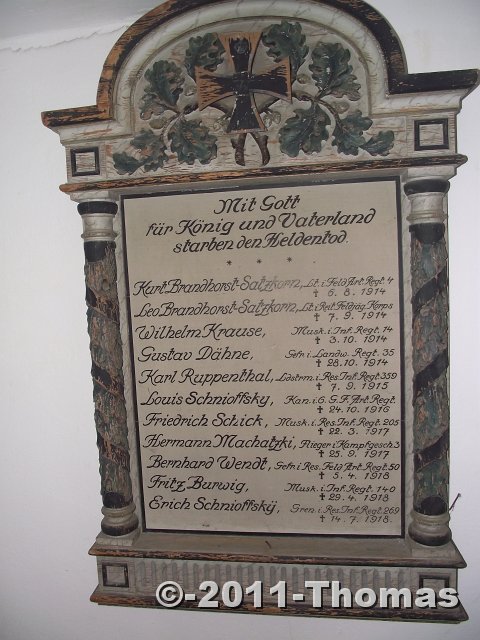 Mit Gott
für König und Vaterland
starben den Heldentod.
* * *
Kurt Brandhorst-Satzkorn, Lt. i. Feld Art. Regt. 4
† 6. 8. 1914
Leo Brandhorst-Satzkorn, Lt. i. Reit. Feldjäg. Korps
† 7. 9. 1914
Wilhelm Krause, Musk. i. Inf. Regt. 14
† 3. 10. 1914
Gustav Dähne, Gefr. i. Landw. Regt. 35
† 28. 10. 1914
Karl Ruppenthal, Ldstrm. i. Res. Inf. Regt. 359
† 7. 9. 1915
Louis Schnioffsky, Kan. i. 6. G. F. Art. Regt.
† 24. 10. 1916
Friedrich Schick, Musk. i. Inf. Regt. 205
† 22. 3. 1917
Hermann Machatzki, Flieger i. Kampfgesch. 3
† 25. 9. 1917
Bernhard Wendt, Gefr. i. Res. Feld Art. Regt. 50
† 5. 4. 1918
Fritz Burwig, Musk. i. Inf. Regt. 140
† 29. 4. 1918
Erich Schnioffsky, Gren. i. Res. Inf. Regt. 269
† 14. 7. 1918
©-2011-Thomas